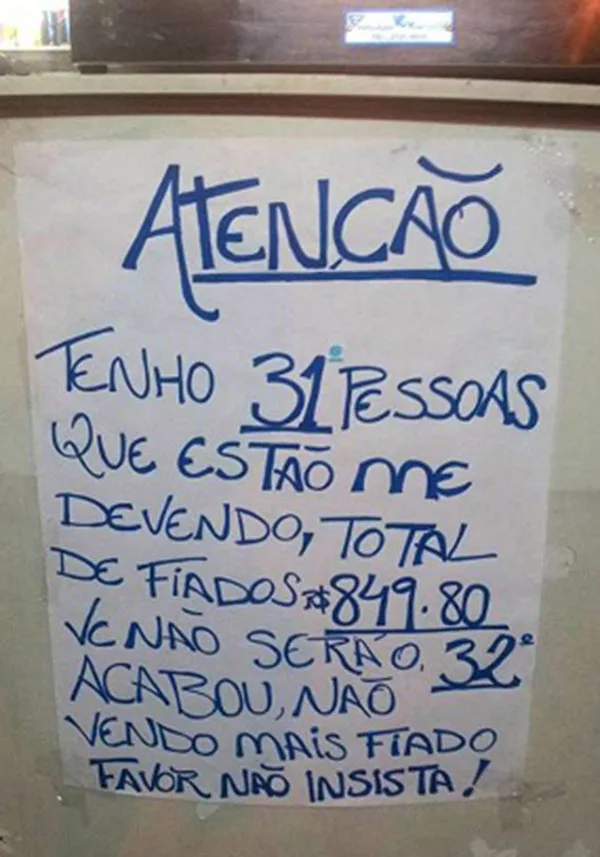 ATENÇÃO
TENHO 31º PESSOAS
QUE ESTÃO ME
DEVENDO, TOTAL
DE FIADOS R$ 849.80
VC NÃO SERÁ O. 32º
ACABOU, NÃO
VENDO MAIS FIADO
FAVOR NÃO INSISTA!